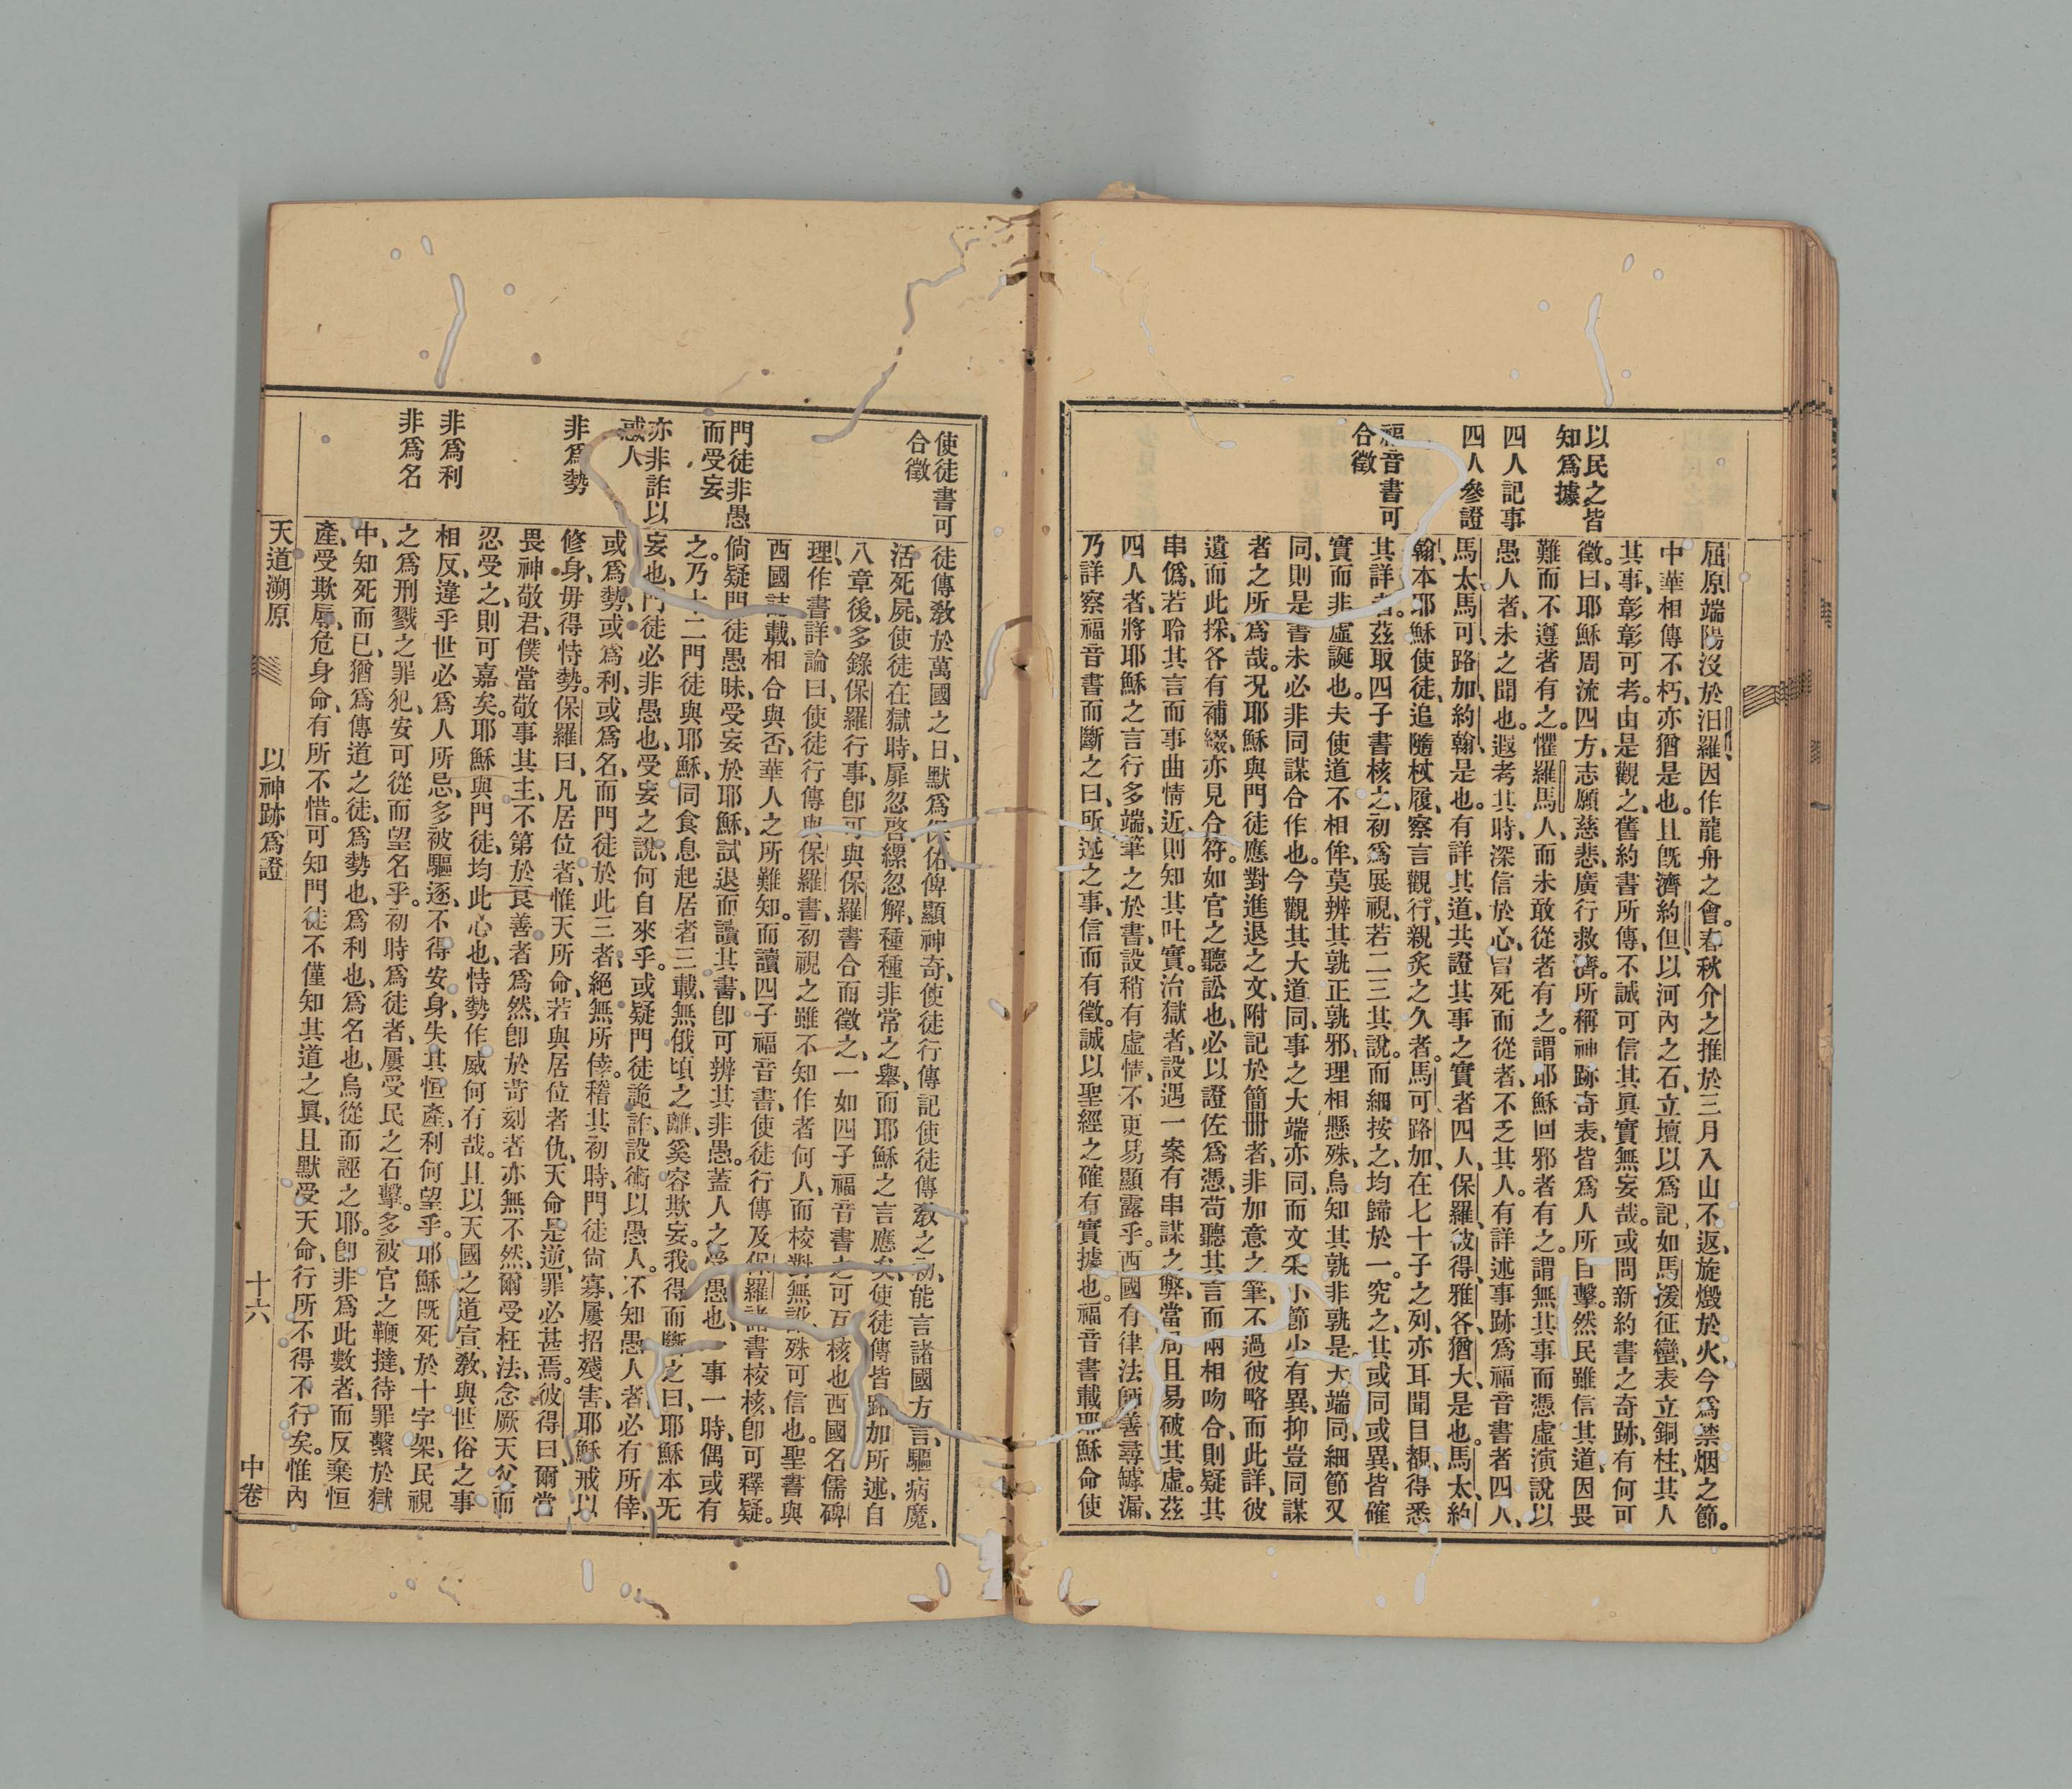 以民之皆
知爲據
四人記事
四人參證
福音書可
合徵
屈原端陽沒於汨羅、因作龍舟之會。春秋介之推於三月入山不返、旋燬於火、今爲禁烟之節。
中華相傳不朽、亦猶是也。且旣濟約但、以河內之石、立壇以爲記、如馬援征蠻、表立銅柱、其人
其事、彰彰可考。由是觀之、舊約書所傳、不誠可信其眞實無妄哉。或問新約書之奇跡、有何可
徵。曰、耶穌周流四方、志願慈悲、廣行救濟。所稱神跡奇表、皆爲人所目擊。然民雖信其道、因畏
難而不遵者有之。懼羅馬人、而未敢從者有之。謂耶穌回邪者有之。謂無其事而憑虛演說以
愚人者、未之聞也。遐考其時、深信於心、冒死而從者、不乏其人。有詳述事跡爲福音書者四人、
馬太馬可路加、約翰、是也。有詳其道、共證其事之實者四人、保羅、彼得、雅各、猶大、是也。馬太、約
翰、本耶穌使徒、追隨杖履、察言觀行、親炙之久者。馬可、路加、在七十子之列、亦耳聞目覩、得悉
其詳者。茲取四子書核之、初爲展視、若二三其說。而細按之、均歸於一。究之、其或同或異、皆確
實而非虛誕也。夫使道不相侔、莫辨其孰正孰邪、理相懸殊、烏知其孰非孰是。大端同、細節又
同、則是書未必非同謀合作也。今觀其大道同、事之大端亦同、而文采小節少有異、抑豈同謀
者之所爲哉。況耶穌與門徒應對進退之文、附記於簡冊者、非加意之筆、不過彼略而此詳、彼
遺而此採、各有補綴、亦見合符。如官之聽訟也、必以證佐爲憑、苟聽其言而兩相吻合、則疑其
串僞、若聆其言而事曲情近、則知其吐實。治獄者、設遇一案有串謀之弊、當局且易破其虛。茲
四人者、將耶穌之言行多端、筆之於書、設稍有虛情、不更易顯露乎。西國有律法師善尋罅漏、
乃詳察福音書而斷之曰、所述之事、信而有徵。誠以聖經之確有實據也。福音書載耶穌命使
使徒書可
合徵
門徒非愚
而受妄
亦非詐以
惑人
非爲勢
非爲利
非爲名
徒傳敎於萬國之日、默爲保佑、俾顯神奇、使徒行傳記使徒傳敎之初、能言諸國方言、驅病魔、
活死屍、使徒在獄時、扉忽啓、縲忽解、種種非常之舉、而耶穌之言應矣。使徒傳皆路加所述、自
八章後、多錄保羅行事、卽可與保羅書合而徵之、一如四子福音書之可互核也。西國名儒碑
理、作書詳論曰、使徒行傳與保羅書、初視之雖不知作者何人、而校對無訛、殊可信也。聖書與
西國誌載、相合與否、華人之所難知。而讀四子福音書、使徒行傳、及保羅諸書校核、卽可釋疑。
倘疑門徒愚昧、受妄於耶穌、試退而讀其書、卽可辨其非愚。蓋人之受愚也、一事一時、偶或有
之。乃十二門徒與耶穌、同食息起居者三載、無俄頃之離、奚容欺妄。我得而斷之曰、耶穌本无
妄也、門徒必非愚也、受妄之說、何自來乎。或疑門徒詭詐、設術以愚人、不知愚人者、必有所倖、
或爲勢、或爲利、或爲名、而門徒於此三者、絕無所倖。稽其初時、門徒尙寡、屢招殘害、耶穌戒以
修身、毋得恃勢。保羅曰、凡居位者、惟天所命、若與居位者仇、天命是逆、罪必甚焉。彼得曰、爾當
畏神敬君、僕當敬事其主、不第於良善者爲然、卽於苛刻者亦無不然、爾受枉法、念厥天父而
忍受之、則可嘉矣。耶穌與門徒、均此心也、恃勢作威何有哉。且以天國之道宣敎、與世俗之事
相反、違乎世必爲人所忌、多被驅逐、不得安身、失其恒產、利何望乎。耶穌旣死於十字架、民視
之爲刑戮之罪犯、安可從而望名乎。初時爲徒者、屢受民之石擊。多被官之鞭撻、待罪繫於獄
中、知死而已、猶爲傳道之徒、爲勢也、爲利也、爲名也、烏從而誣之耶。卽非爲此數者、而反棄恒
產、受欺辱、危身命、有所不惜。可知門徒不僅知其道之眞、且默受天命、行所不得不行矣。惟內
天道溯原　以神跡爲證　十六　中卷